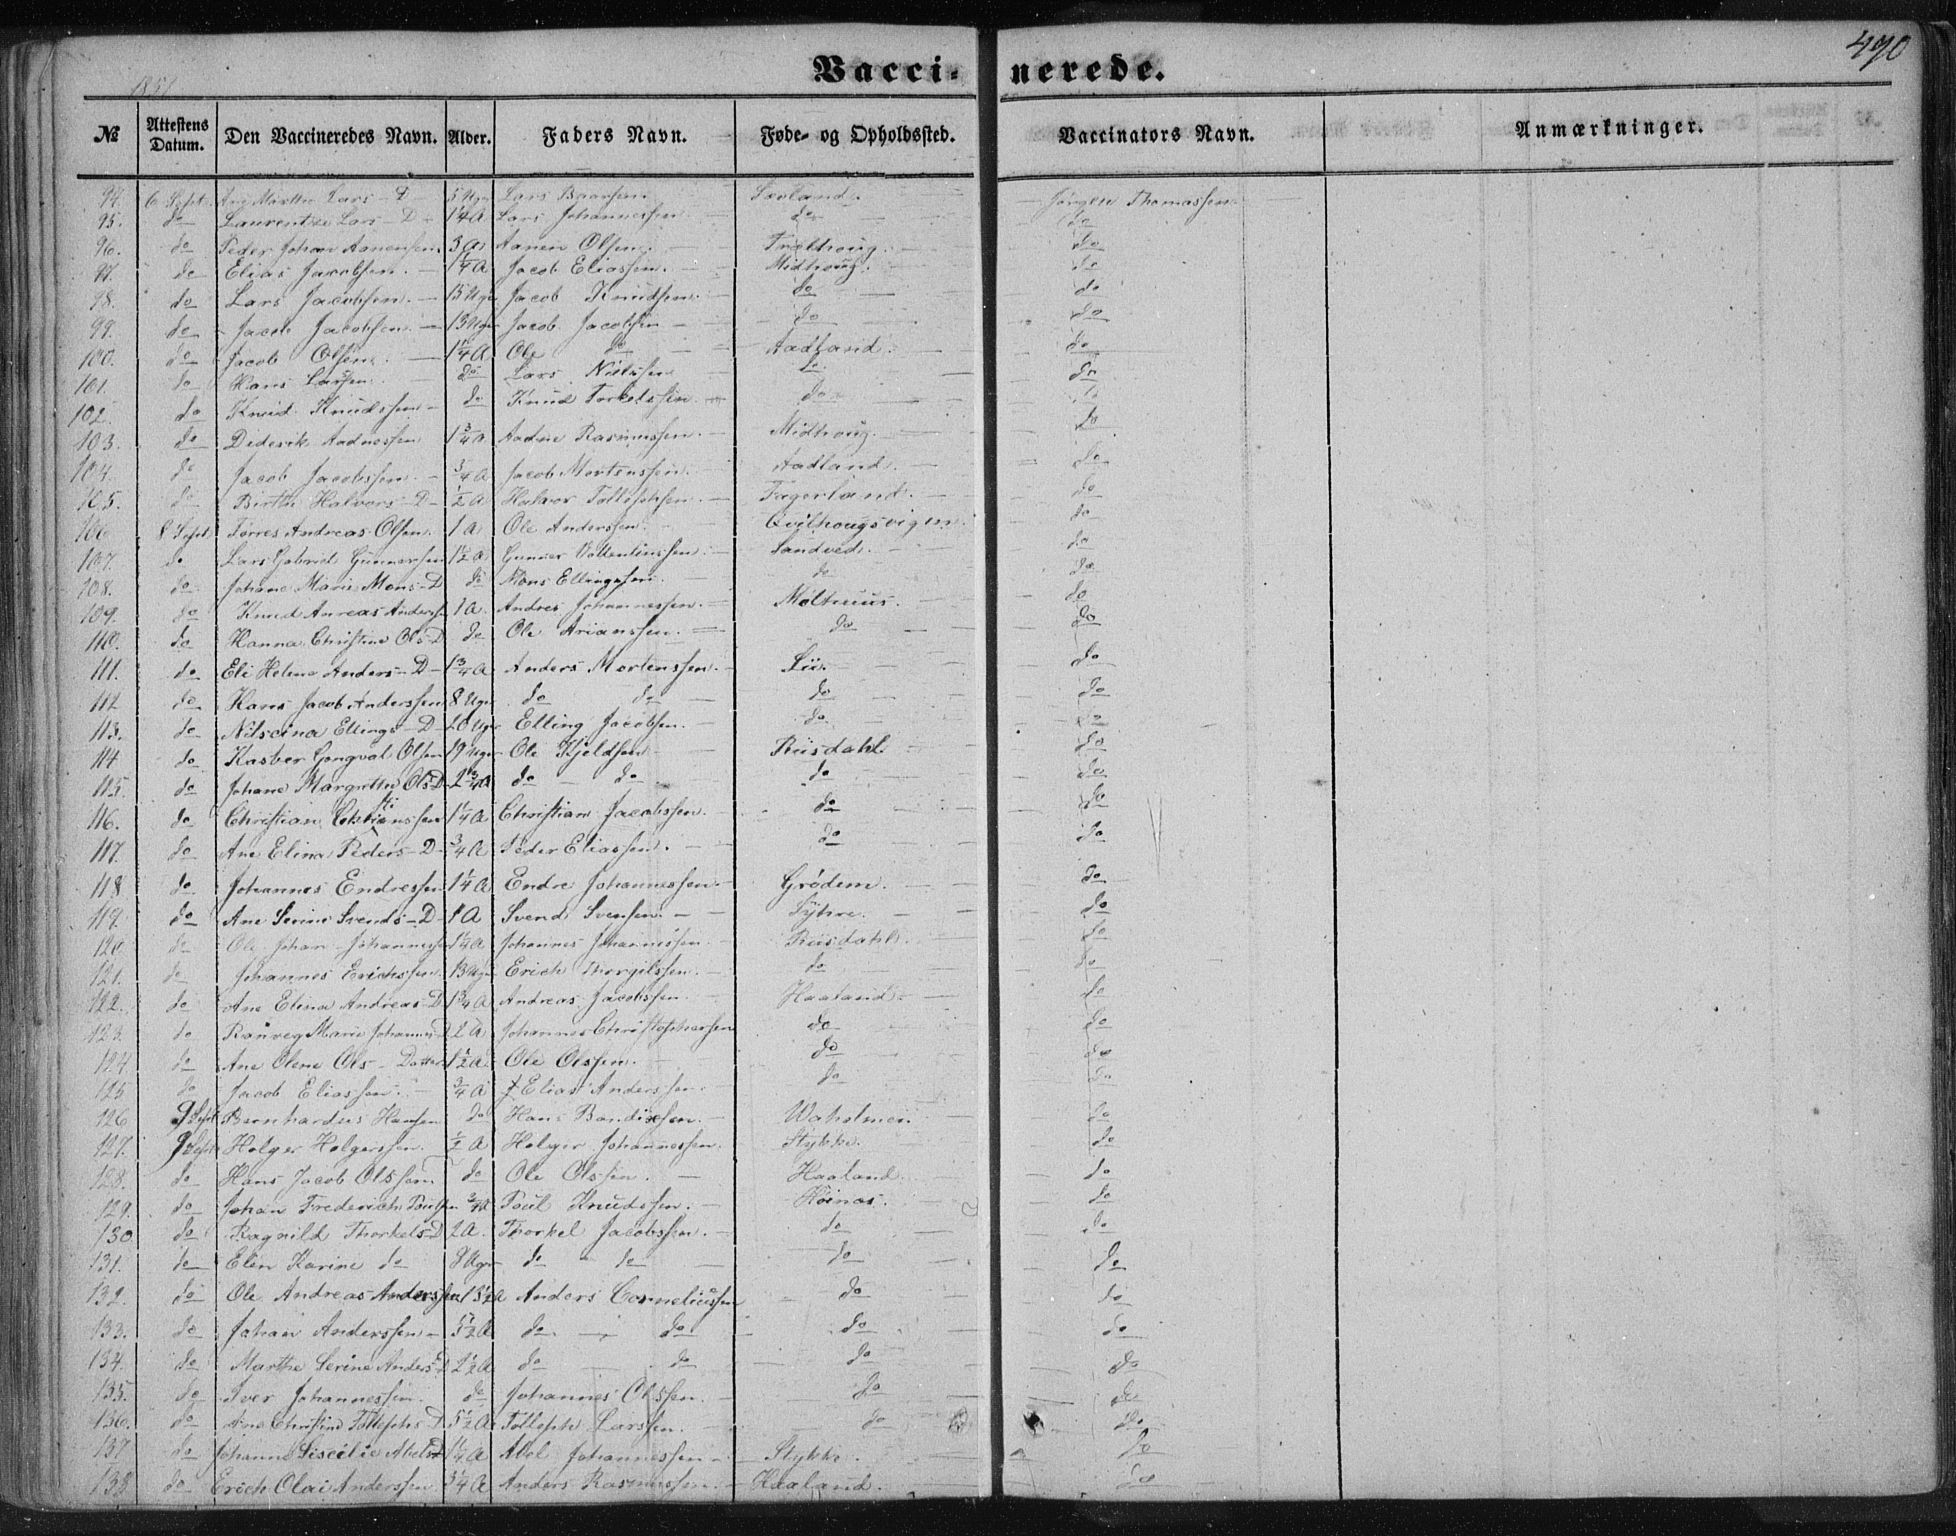 490
Vacci- nerede.
1851
№ Attestens Datum. Den Vaccineredes Navn. Alder. Faders Navn. Føde- og Opholdssted. Vaccinators Navn. Anmærkninger.
94. 6 Sept. Ane Marthe Lars-D 5 Uger Lars Jørgen Thomassen
95. do Laurentze Lars-D 1 1/4 A Lars Johannessen do do
96. do Peder Johan Aanensen 3 A Aanen Olsen do
97. do Elias Jacobsen 1/4 A Jacob Eliassen Midthoug do
98. do Lars Jacobsen 15 Uger Jacob Knudsen do do
99. do Jacob Jacobsen 15 Uger Jacob Jacobsen do do
100. do Jacob Olsen 1 1/4 A Ole do Aadland do
101. do Hans Larsen do Lars do do
102. do Knud Knudssen do Knud Torkelssen do do
103. do Diderik Aadnessen 1 3/4 A Aadne Rasmussen Midthoug do
104. do Jacob Jacobssen 3/4 A Jacob Mortenssen Aadland do
105. do Birthe Halvors-D 1/2 A Halvor Tollefssen Fagerland do
106 8 Sept. Torres Andreas Olsen 1 A Ole Anderssen Qvilhougsvigen do
107. do Lars Gabriel Gunnersen 1 1/2 A Gunner Vallentinssen Sandved do
108. do Johane Marie Mons-D do Mons Ellingssen do do
109. do Knud Anreas Anderssen 1 A. Andres Johannessen Molthuus do
110. do Hanna Christine Ols-D do Ole Arianssen do do
111. do Eli Helene Anders-D 1 3/4 A Anders Mortenssen Lie do
112 do Hans Jacob Anderssen 8 Uger do do do do
113. do Nilseina Ellings-D 20 Uger Elling Jacobsen do do
114 do Kasber Gongval Olsen 19 Uger Ole Kjeldsen Riisdahl do
115. do Johane Margrethe Ols-D 2 3/4 A do do do do
116. do Christian Christianssen 1 1/4 A Christian Jacobssen do do
117. do Ane Elina Peders-D 3/4 A Peder Eliassen do do
118 do Johannes Endressen 1 1/4 A Endre Johannessen Grødem do
119. do Ane Serine Svends-D 1 A Svend Svensen do
120 do Ole Johan Johannessen 1 1/4 A Johannes Johannessen Riisdahl do
121. do Johannes Erichssen 13 Uger Erich Thorgilssen do do
122. do Ane Elina Andreas-D 1 3/4 A Andreas Jacobssen Haaland do
123. do Ranveg Marie Johannes-D 2 A Johannes Christophersen do do
124 do Ane Olene Ols-Datter 1 1/2 A Ole Olssen do do
125 do Jacob Eliassen 3/4 A Elias Anderssen do do
126 9 Sept. Bernhardus Hansen do Hans Bendixsen Waholmen do
127. 9 Sept Holger Holgerssen 1/2 A Holger Johannessen Stykke do
128. do Hans Jacob Olssen do Ole Olssen Haaland do
129. do Johan Frederich Poulsen 3/4 A Poul Knudssen Høinæs do
130 do Ragnild Thorkels-D 2 A. Thorkel Jacobssen do do
131. do Elen Karine do 8 Uger do do do do
132. do Ole Andreas Anderssen 13 1/2 A Anders Corneliussen do do
133. do Johan Anderssen 5 1/2 A do do do do
134. do Marthe Serine Anders-D 2 1/2 A do do do do
135. do Iver Johannessen do Johannes Olssen do do
136. do Ane Christine Tollephs D 5 1/2 A Tolleph Larssen do do
137 do Johanne Siscelie Abels-D 1 1/4 A Abel Johannessen Stykke do
138 do Erich Olai Anderssen 3 1/4 A Anders Rasmussen Haaland do